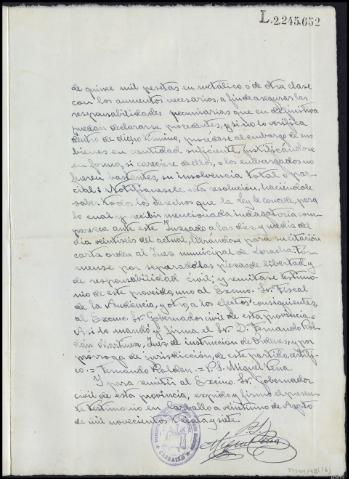 L.2.245.652
de quince mil pesetas en metálico o de otra clase
con los aumentos necesarios, a fin de asegurar las
responsabilidades pecuniarias que en definitiva
puedan declararse procedentes, y si no lo verifica
dentro de dicho término, procédase al embargo de sus
bienes en cantidad suficiente, justificándose
en forma, si careciere de ello, o los embargados no
fueren bastantes, su insolvencia total o par-
cial: Notifíquesele esta resolución, haciéndole
saber todos los derechos que la ley le concede, para
lo cual y recibir mencionada indagatoria com-
parezca ante este Juzgado a las diez y media del
día veintiseis del actual, librándose para su citación
carta orden al Juez municipal de
mense por separado las piezas de libertad y
de responsabilidad civil, y remítase testimo-
nio de este proveído, uno al Excmo. Sr. Fiscal
de la Audiencia, y otro, a los efectos consiguientes,
al Excmo. Sr. Gobernador civil de esta provincia.
Así lo mandó y firma el Sr. D. Fernando Rol-
dán Juez de instrucción de Ordenes, y por
prórroga de jurisdicción, de este partido; certifi-
co.= Fernando Roldán.= P.S. Miguel Pena
Y para remitir al Excmo. Sr. Gobernador
civil de esta provincia, expido y firmo el presen-
te testimonio en Carballo a veintiuno de Agosto
de mil novecientos treinta y siete.
CARBALLO
Miguel Pena